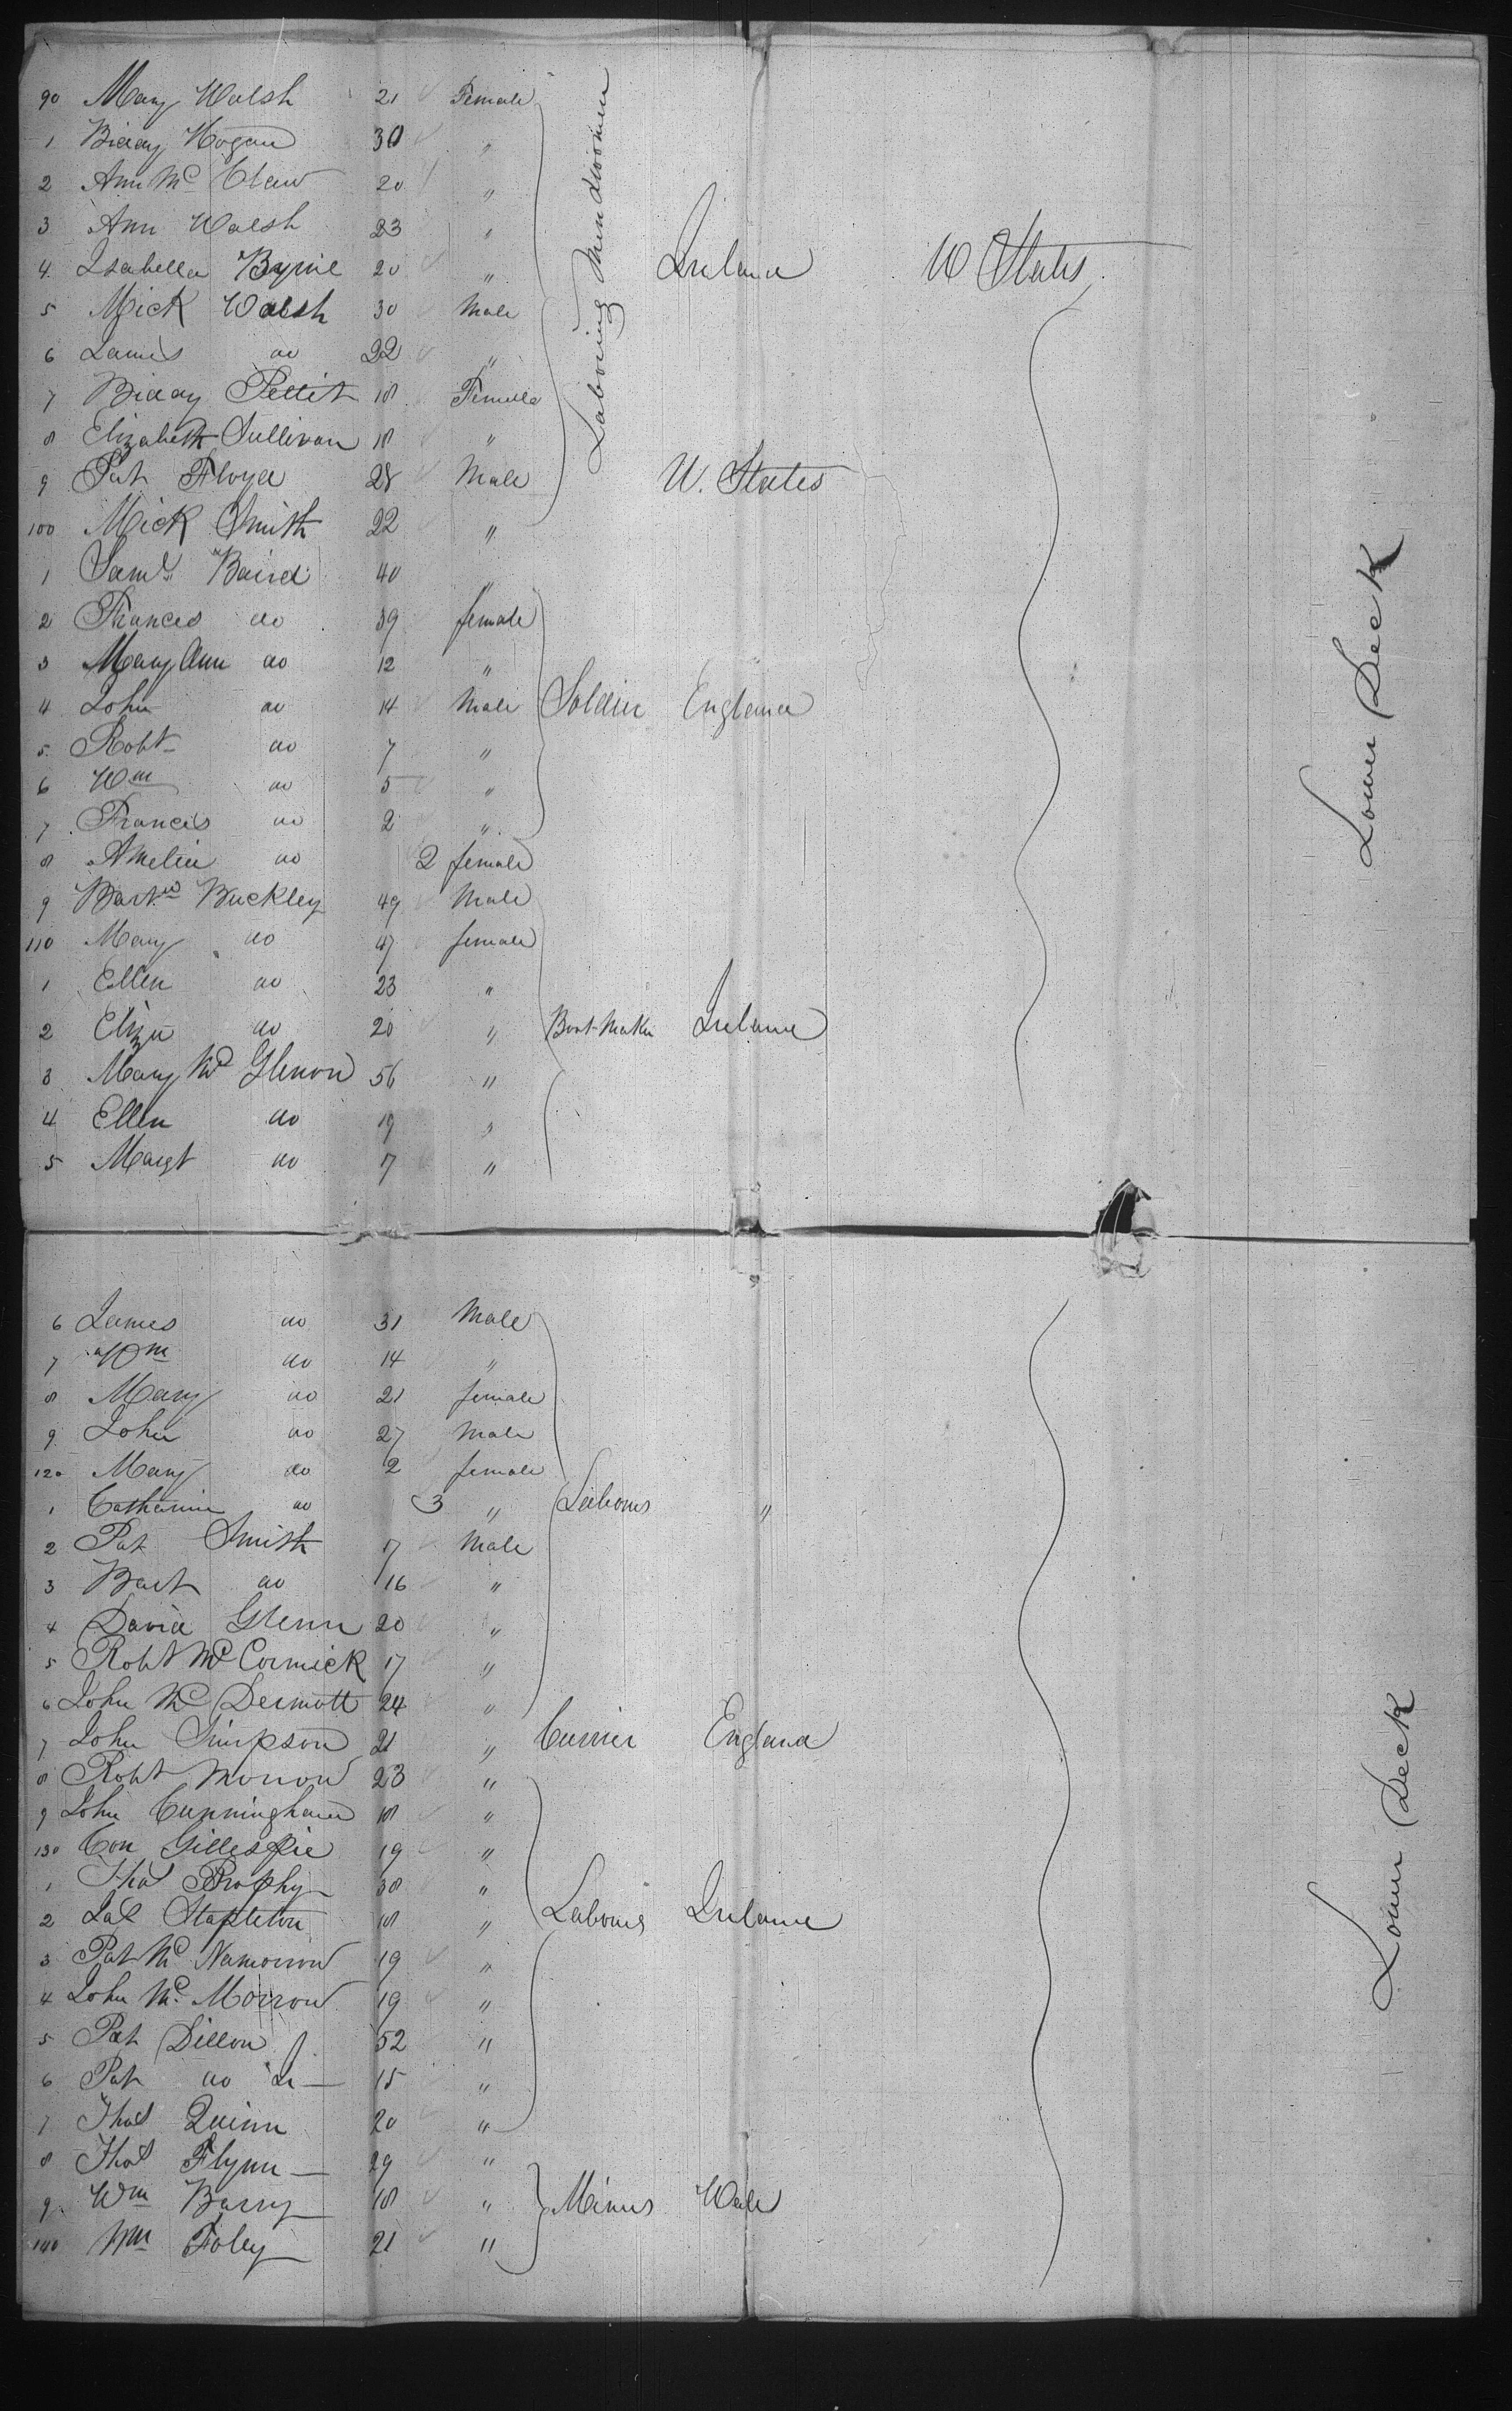 90 Mary Walsh 21 Female
1 Biddy Hogan 30 "
2 Ann Mc 20 "
3 Ann Walsh 23 "
4 Isabella Byrne 20 " Ireland U States
5 Mick Walsh 30 Male Laboring Men & women
6 James do 22 "
7 Biddy Pettit 18 Female
8 Elizabeth Sullivan 18 "
9 Pat Floyd 28 Male U. States
100 Mick Smith 22 "
1 Saml Baird 40 "
2 Frances do 39 female
3 Mary Ann do 12 "
4 John do 14 Male Soldier England
5 Robt do 7 "
6 Wm do 5 "
7 Francis do 2 "
8 Amelia do 2 female
9 Bartw Buckley 49 Male
110 Mary do 47 female
1 Ellen do 23 "
2 Eliza do 20 " Boot-Maker Ireland
3 Mary Mc Glenon 56 "
4 Ellen do 19 "
5 Margt do 17 "
Lower Deck
6 James do 31 Male
7 Wm do 14 "
8 Mary do 21 female
9 John do 27 Male
120 Mary do 2 female
1 Catharine do 3 " Laborers "
2 Pat Smith 17 Male
3 Bart do 16 "
4 David Glenn 20 "
5 Robt Mc Cormick 17 "
6 John Mc Dermott 24 "
7 John Simpson 21 " Currier England
8 Robt Morrow 23 "
9 John Cunningham 18 "
130 Con Gillespie 19 "
1 Thos Brophy 38 "
2 Jas Stapleton 18 " Laborers Ireland
3 Pat Mc Namorrow 19 "
4 John Mc Morrow 19 "
5 Pat Dillon 52 "
6 Pat do 15 "
7 Thos Quinn 20 "
8 Thos Flynn 29 "
9 Wm Barry 18 " Miners Wales
140 Wm Foley 21 "
Lower Deck